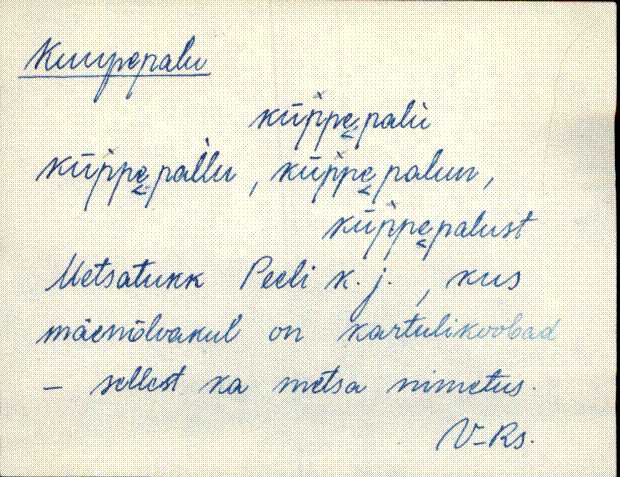 Kuupepalu
küppe̬palu
kūppe̬pal̀lu, kūppe̬palun,
kūppe̬palust
Metsatukk Peeli k. j., kus
mäenõlvakul on kartulikoobad
– sellest ka metsa nimetus.
V-Rs.